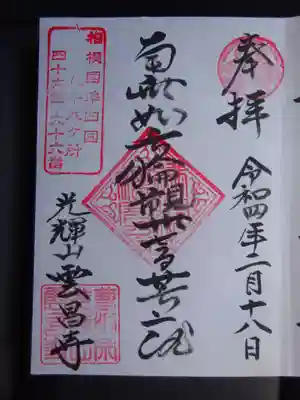 奉拝
令和四年二月十八日
南無如意輪観世音菩薩
光輝山雲昌寺
相模国準四国
八十八ケ所
四十六番 六十六番